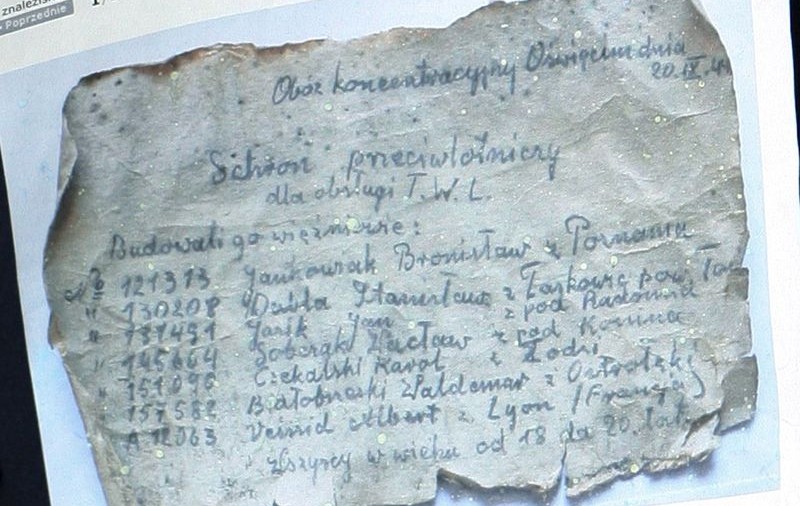 Poprzednie
Obóz koncentracyjny Oświęcim dnia
20.IX.4
Schron przeciwlotniczy
dla obsługi T.W.L.
Budowali go więźniowie:
№ 121313 Jankowiak Bronisław z Poznania
" 130208 Dubla Stanisław z Łaskowic pow. Tar
" 131491 Jasik Jan z pod Radomia
" 145664 Sobczak Wacław z pod Konina
" 151090 Czekalski Karol z Łodzi
" 157582 Białobrzeski Waldemar z Ostrołęki
A 12063 Veissid Albert z Lyon /Francja/
Wszyscy w wieku od 18 do 20 lat.